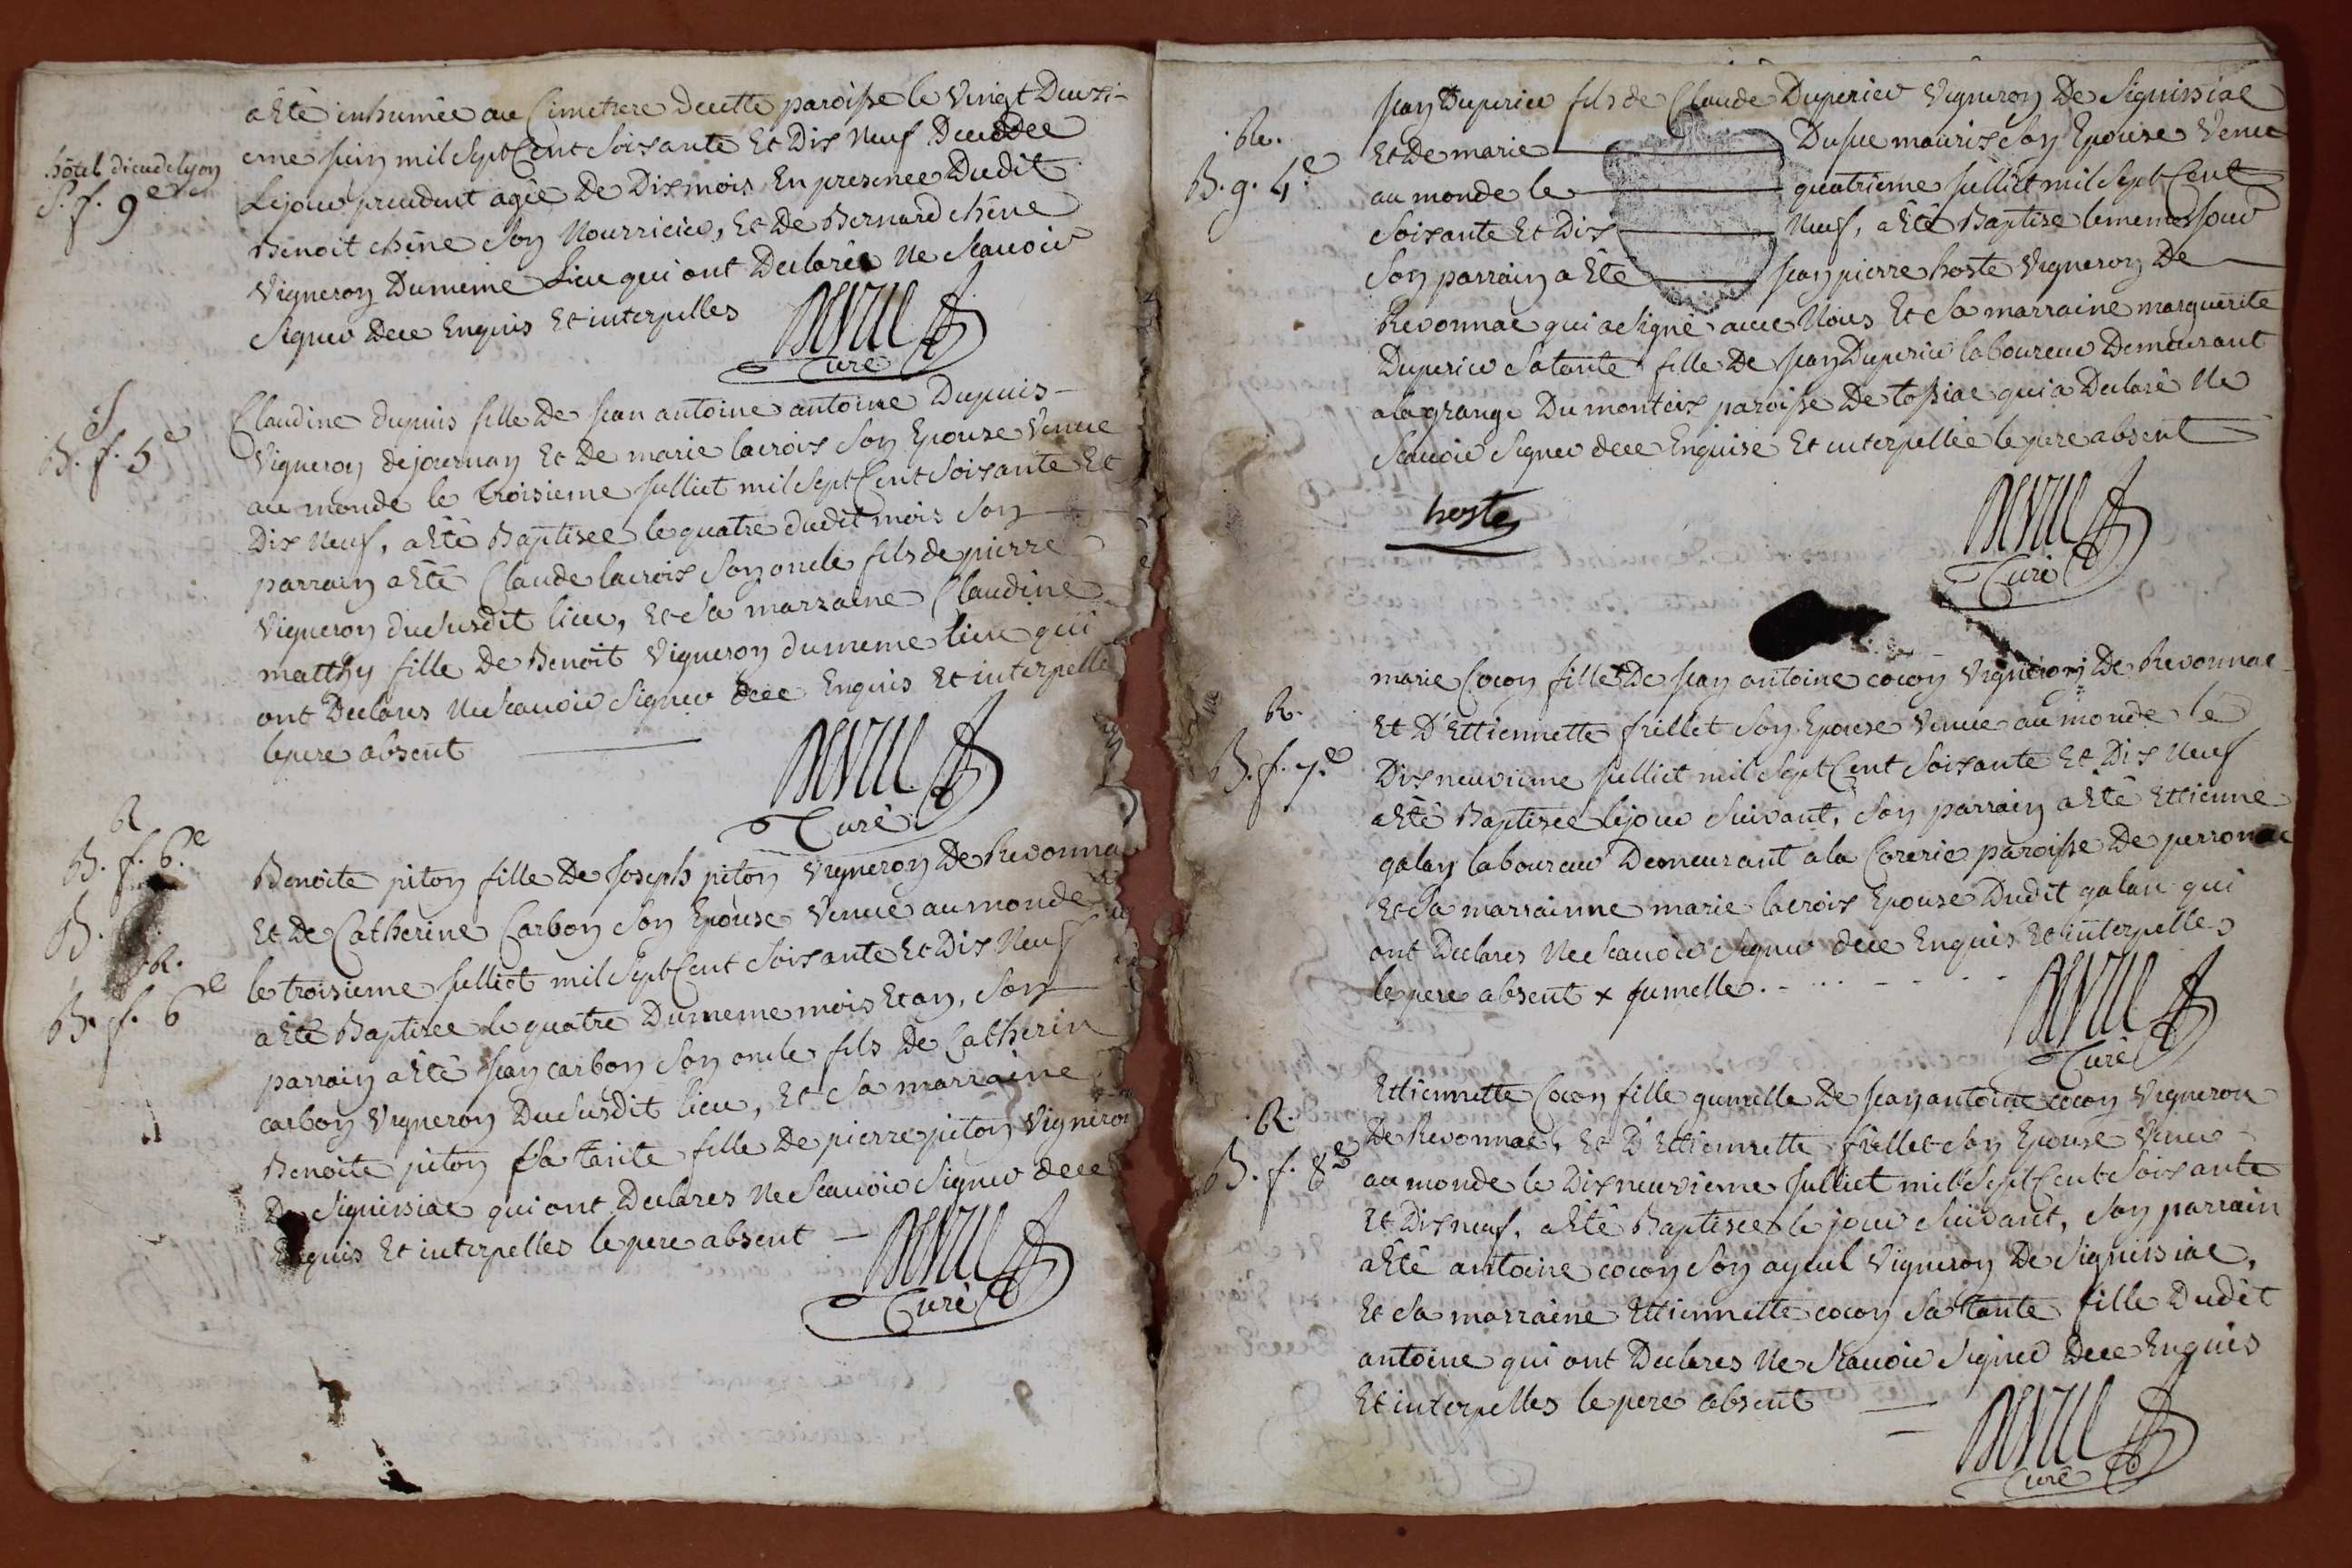 a êté inhumée au Cimetiere decette paroisse le Vingt Deuxi-
eme juin mil sept Cent soixante Et Dix Neuf Decedee
Lejour precedent agée De Dix mois En presence Dudit
Benoit chêne son Nourricier, Et De Bernard chêne
Vigneron Dumeme Lieu qui ont Declarés Ne scavoir
signer Dece Enquis Et interpelles
hôtel dieu de lyon
S. f. 9e
Curé
J
B. f. 5e
Claudine dupuis fille De jean antoine antoine Dupuis
Vigneron dejournan Et De marie lacroix son Epouse Venue
au monde le troisieme julliet mil sept Cent soixante Et
Dix Neuf, a êté Baptisee le quatre dudit mois son
parrain a êté Claude lacroix son oncle fils de pierre
Vigneron dususdit lieu, et sa marraine Claudine
matthy fille De Benoit Vigneron dumeme lieu qui
ont Declares Ne scavoir signer dece Enquis Et interpelle
lepere absent
Curé
R
B. f. 6.e
B.
R.
B. f. 6e
Benoite piton fille De joseph piton Vigneron De Revonna
Et De Catherine Carbon son Epouse Venue au monde
le troisieme julliet mil sept Cent soixante Et Dix Neuf
a êté Baptisee le quatre Dumeme mois Et an, son
parrain a êté jean carbon son oncle fils De Catherin
carbon Vigneron Dususdit lieu, Et sa marraine
Benoite piton sa tante fille De pierre piton Vigneron
De signissiac qui ont Declares Ne scavoir signer dece
Enquis Et interpelles le pere absent
Curé
R.
B. g. 4.e
jean Duperier fils de Claude Duperier Vigneron De signissiac
Et De marie Dufue mauris son Epouse Venu
au monde le quatrieme julliet mil sept Cent
soixante Et Dix Neuf, a êté Baptise lememe jour
son parrain a êté jean pierre hoste Vigneron De
Revonnac qui a signé avec Nous Et sa marraine marguerite
Duperier sa tante fille De jean Duperier laboureur Demeurant
ala grange Du monteix paroisse De tossiac qui a Declaré Ne
scavoir signer dece Enquise Et interpellée le pere absent
hoste
Curé
R.
B. f. 7.e
marie Cocon fille De jean antoine cocon Vigneron De Revonnac
Et D'Ettiennette frillet son Epouse Venue au monde le
Dix neuvieme julliet mil sept Cent soixante Et Dix Neuf
a êté Baptisee le jour suivant, son parrain a êté Ettienne
galan laboureur Demeurant a la Corerie paroisse De perronac
et sa marrainne marie lacroix Epouse Dudit galan qui
ont Declares Ne scavoir signer dece Enquis Et interpelles
le pere absent x jumelle
Curé
R.
B. f. 8e
Ettiennette Cocon fille gumelle De jean antoine cocon Vigneron
De Revonnac, Et D'Ettiennette frillet son Epouse Venue
au monde le Dix neuvieme julliet mil sept Cent soixante
Et Dix neuf, a êté Baptisee le jour suivant, son parrain
a êté antoine cocon son ayeul Vigneron De signissiac,
Et sa marraine Ettiennette cocon sa tante fille Dudit
antoine qui ont Declares Ne scavoir signer Dece Enquis
Et interpelles le pere absent
Curé